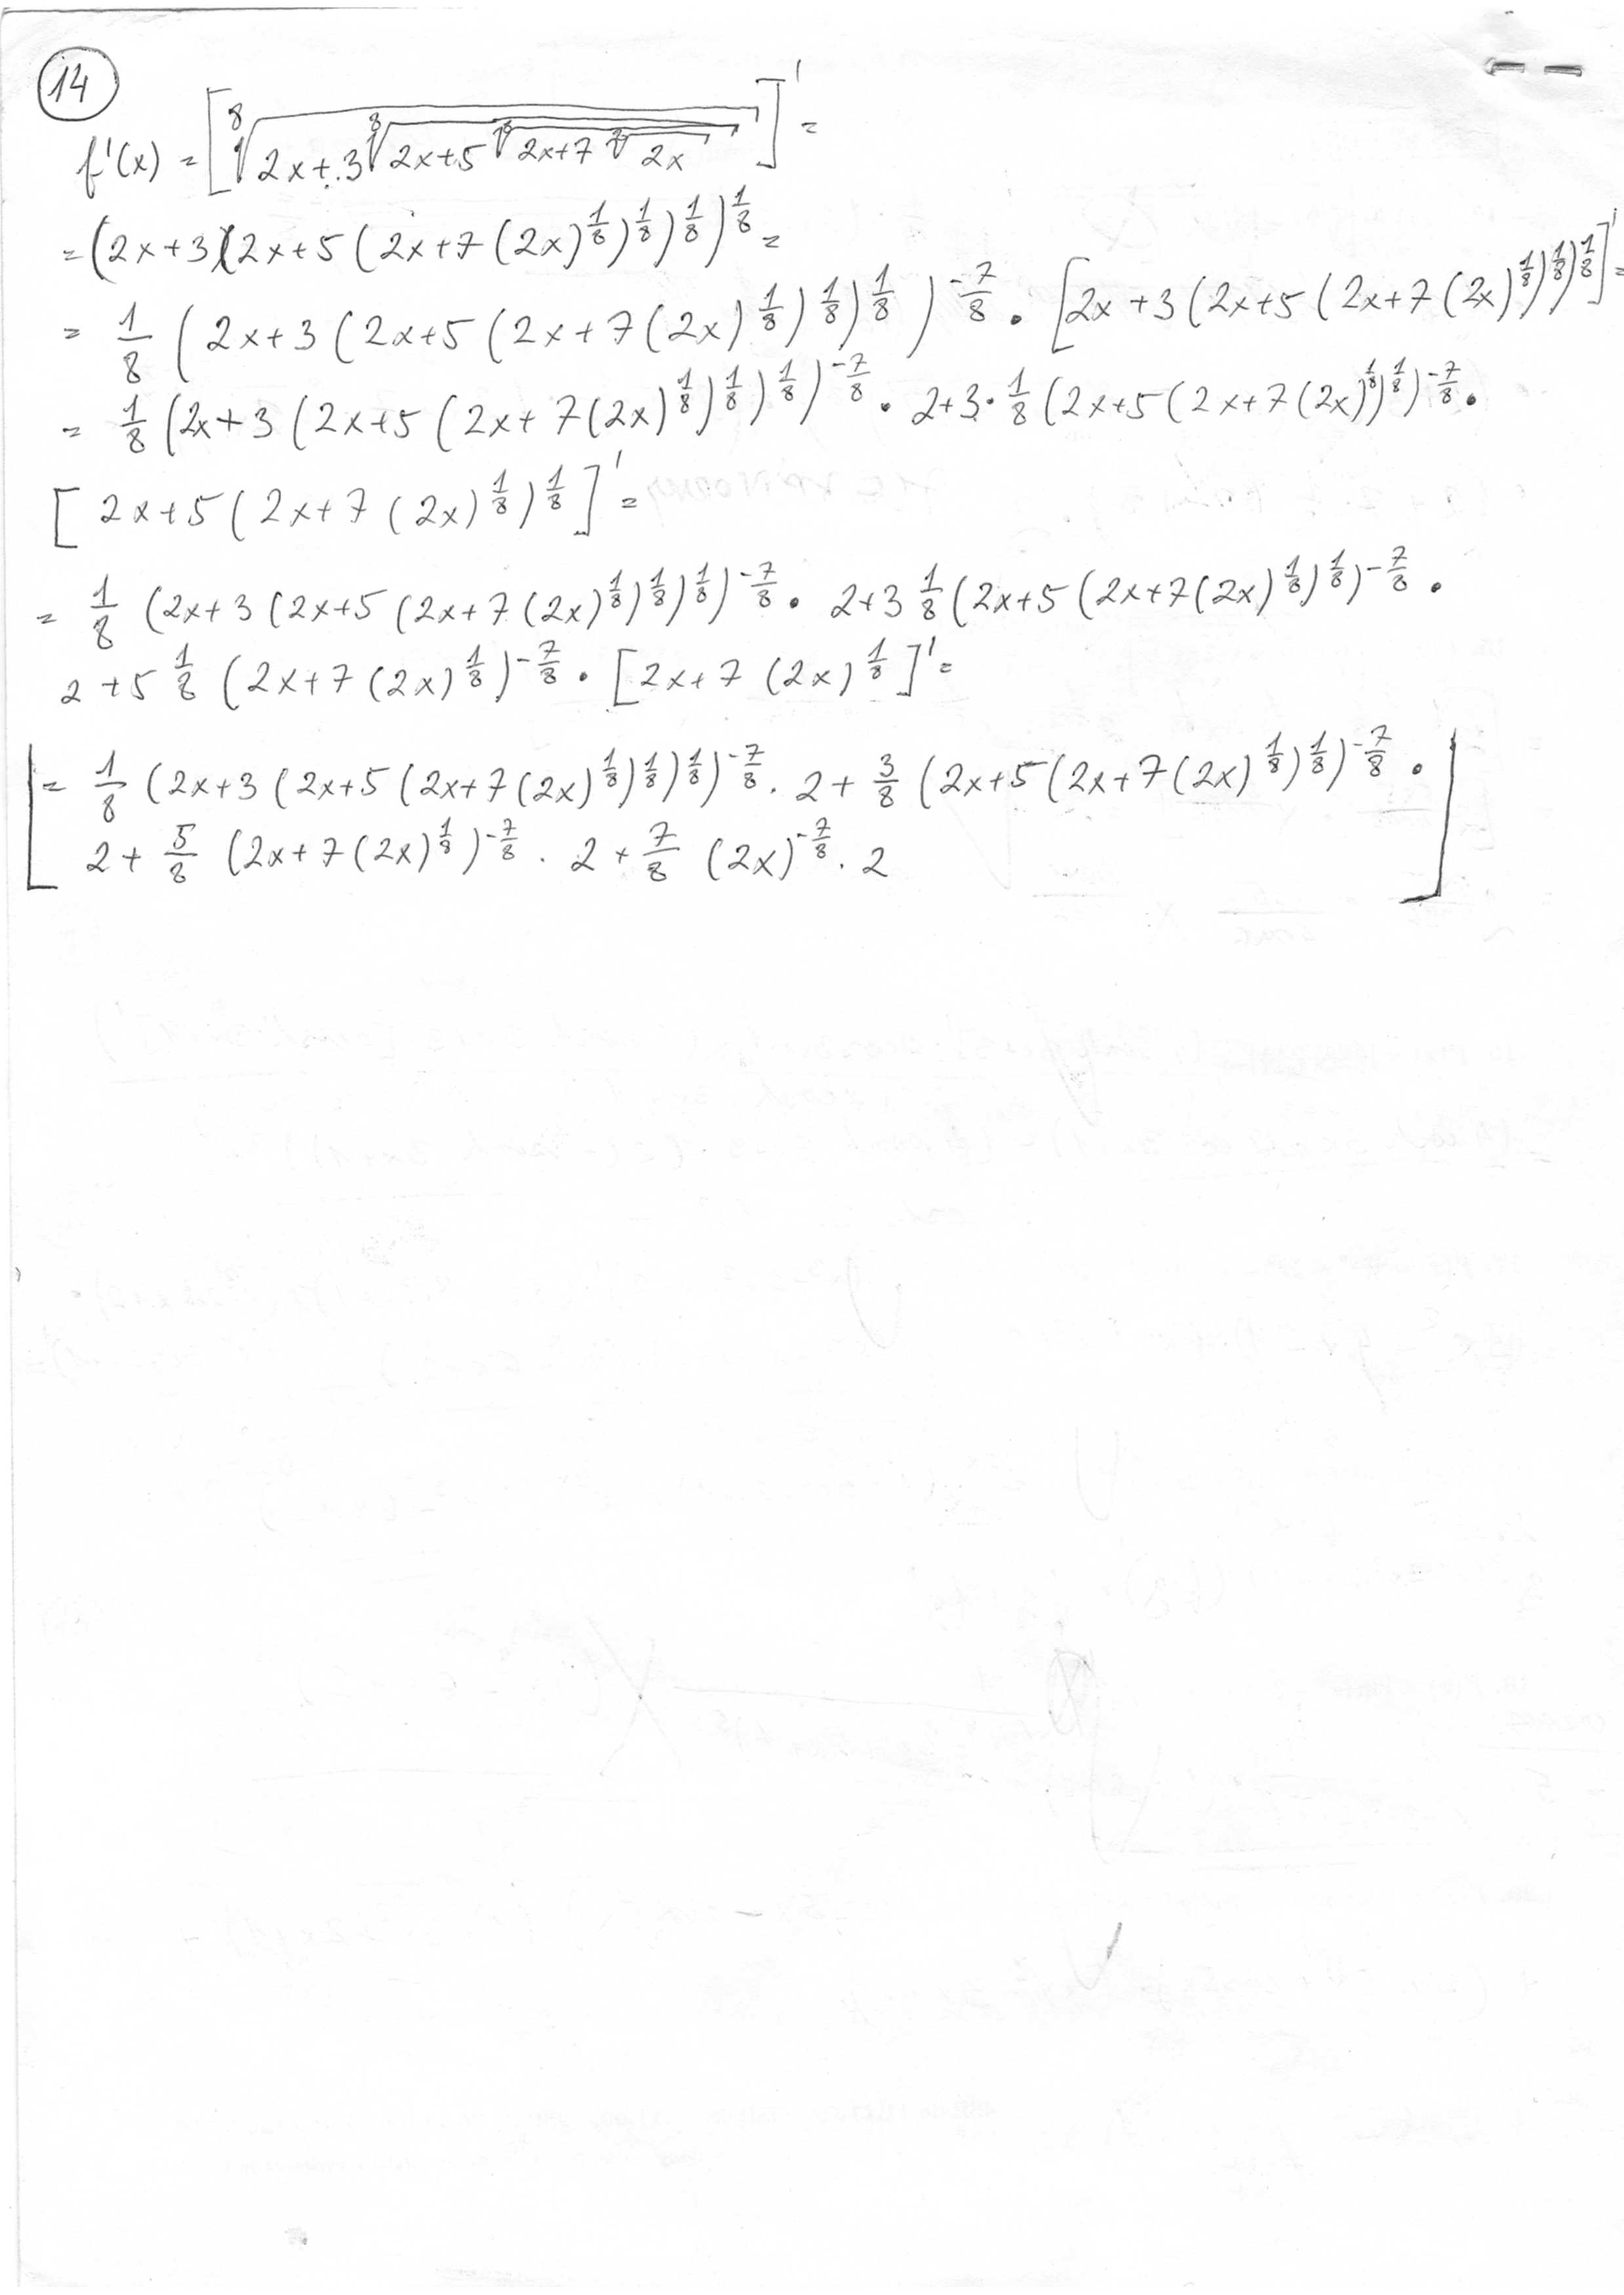 14
f'(x) = [⁸√(2x+3 ⁸√(2x+5 ⁸√(2x+7 ⁸√(2x))))]' =
= (2x+3(2x+5(2x+7(2x)^{1/8})^{1/8})^{1/8})^{1/8} =
= 1/8 (2x+3(2x+5(2x+7(2x)^{1/8})^{1/8})^{1/8})^{-7/8} · [2x+3(2x+5(2x+7(2x)^{1/8})^{1/8})^{1/8}]' =
= 1/8 (2x+3(2x+5(2x+7(2x)^{1/8})^{1/8})^{1/8})^{-7/8} · 2+3·1/8 (2x+5(2x+7(2x)^{1/8})^{1/8})^{-7/8} ·
[2x+5(2x+7(2x)^{1/8})^{1/8}]' =
= 1/8 (2x+3(2x+5(2x+7(2x)^{1/8})^{1/8})^{1/8})^{-7/8} · 2+3 1/8 (2x+5(2x+7(2x)^{1/8})^{1/8})^{-7/8} ·
2+5 1/8 (2x+7(2x)^{1/8})^{-7/8} · [2x+7(2x)^{1/8}]' =
= 1/8 (2x+3(2x+5(2x+7(2x)^{1/8})^{1/8})^{1/8})^{-7/8} · 2 + 3/8 (2x+5(2x+7(2x)^{1/8})^{1/8})^{-7/8} ·
2 + 5/8 (2x+7(2x)^{1/8})^{-7/8} · 2 + 7/8 (2x)^{-7/8} · 2